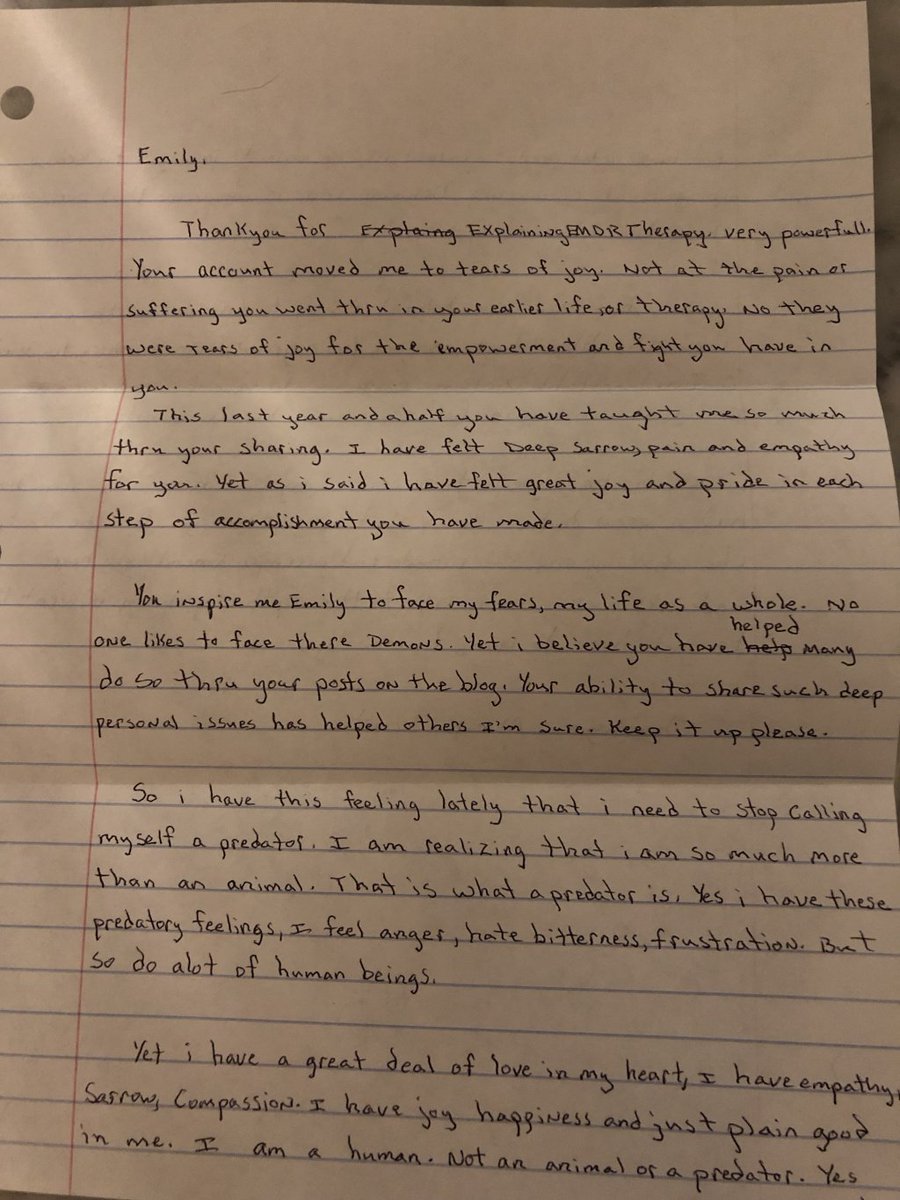 Emily,
Thankyou for Explaing ExplainingEMDRTherapy. very powerfull.
Your account moved me to tears of joy. Not at the pain or
suffering you went thru in your earlier life, or therapy. No they
were tears of joy for the empowerment and fight you have in
you.
This last year and a half you have taught me so much
thru your sharing. I have felt Deep Sarrow, pain and empathy
for you. Yet as i said i have felt great joy and pride in each
step of accomplishment you have made.
You inspire me Emily to face my fears, my life as a whole. No
helped
one likes to face there Demons. Yet i believe you have help many
do so thru your posts on the blog. Your ability to share such deep
personal issues has helped others I'm sure. Keep it up please.
So i have this feeling lately that i need to stop calling
myself a predator. I am realizing that i am so much more
than an animal. That is what a predator is. Yes i have these
predatory feelings, I feel anger, hate bitterness, frustration. But
so do alot of human beings.
Yet i have a great deal of love in my heart, I have empathy,
Sarrow, Compassion. I have joy happiness and just plain good
in me. I am a human. Not an animal or a predator. Yes